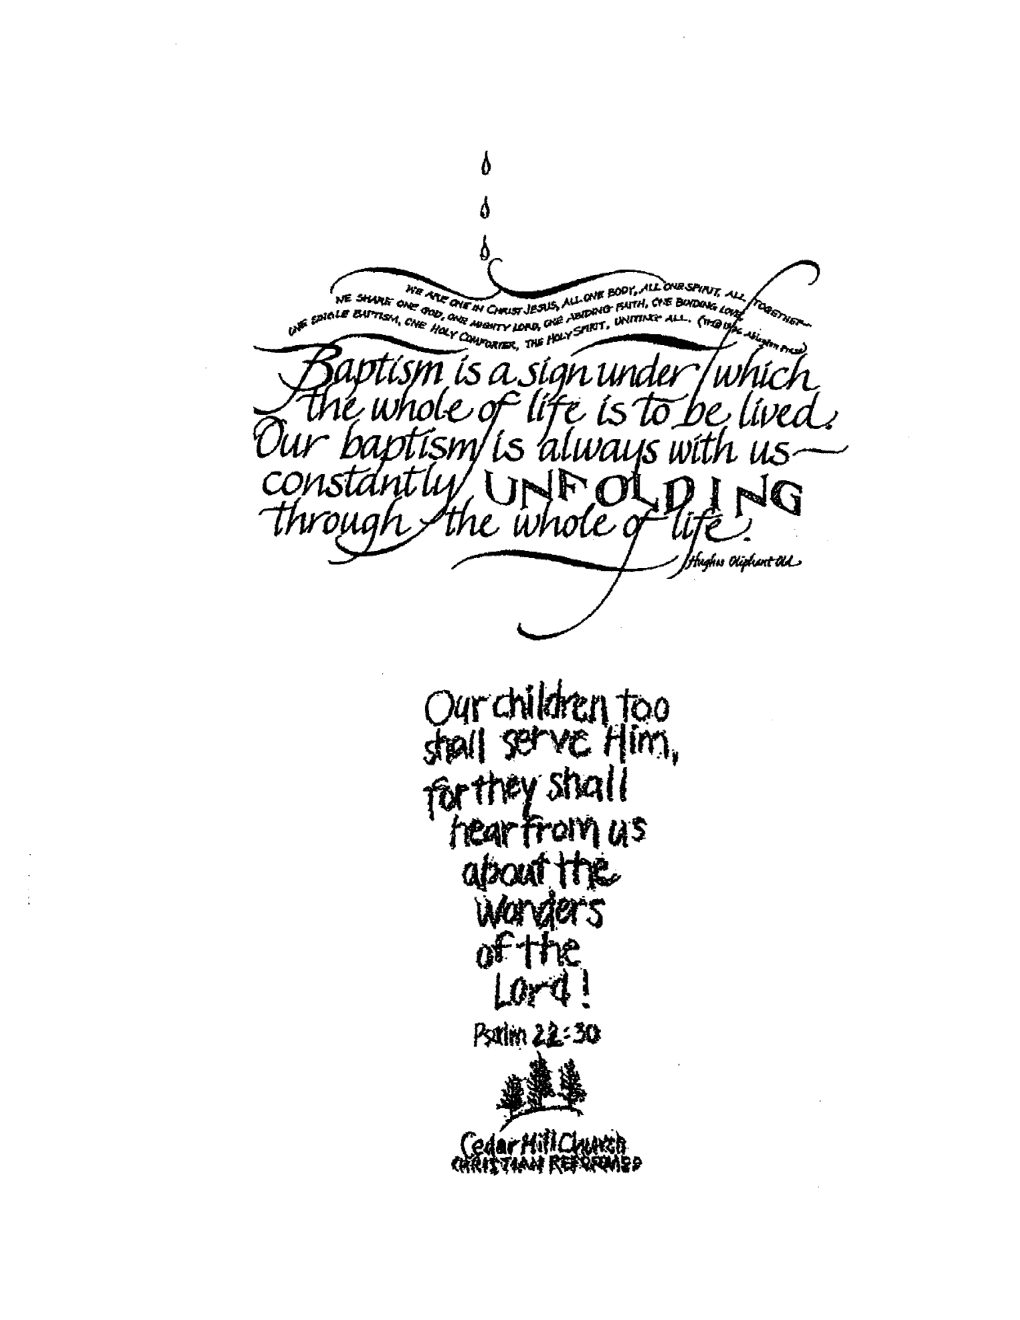 WE ARE ONE IN CHRIST JESUS, ALL ONE BODY, ALL ONE SPIRIT, ALL TOGETHER—
WE SHARE ONE GOD, ONE MIGHTY LORD, ONE ABIDING FAITH, ONE BINDING LOVE,
ONE SINGLE BAPTISM, ONE HOLY COMFORTER, THE HOLY SPIRIT, UNITING ALL. ( Abingdon Press)
Baptism is a sign under which
the whole of life is to be lived.
Our baptism is always with us—
constantly UNFOLDING
through the whole of life.
Hughes Oliphant Old
Our children too
shall serve Him,
for they shall
hear from us
about the
wonders
of the
Lord!
Psalm 22:30
Cedar Hill Church
CHRISTIAN REFORMED